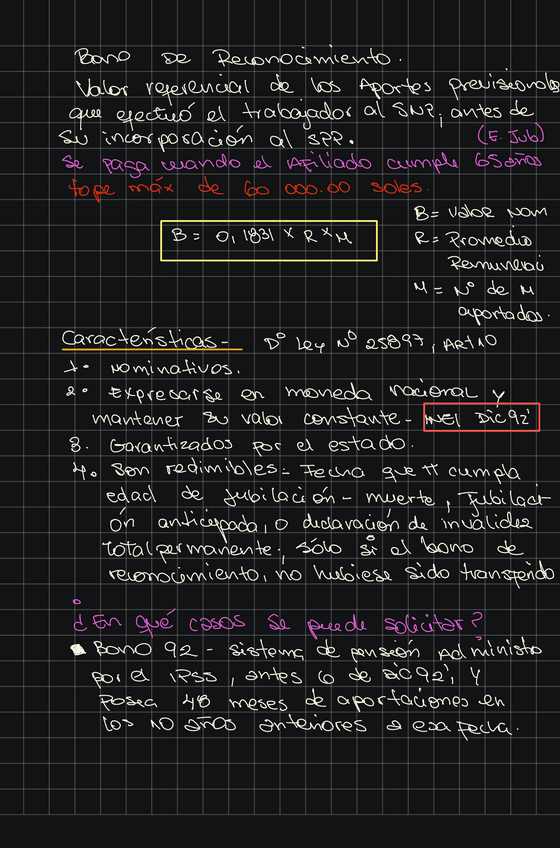 Bono de Reconocimiento.
Valor referencial de los Aportes previsionales
que efectuó el trabajador al SNP, antes de
su incorporación al SPP. (E. Jub)
se paga cuando el Afiliado cumple 65 años
tope máx de 60 000.00 soles.
B = 0,1831 x R x M
B = Valor Nom
R = Promedio
Remuneraci
M = N° de M
aportados.
Características - D° Ley N° 25897, ART 10
1. Nominativos.
2. Expresarse en moneda nacional y
mantener su valor constante - INEI DIC 92'
3. Garantizados por el estado.
4. Son redimibles = Fecha que π cumpla
edad de jubilación - muerte, Jubilaci
ón anticipada, o declaración de invalidez
total permanente, sólo si el bono de
reconocimiento, no hubiese sido transferido
¿En qué casos se puede solicitar?
Bono 92 - sistema de pensión Administra
por el IPSS, antes 6 de DIC 92', y
Posea 48 meses de aportaciones en
los 10 años anteriores a esa fecha.